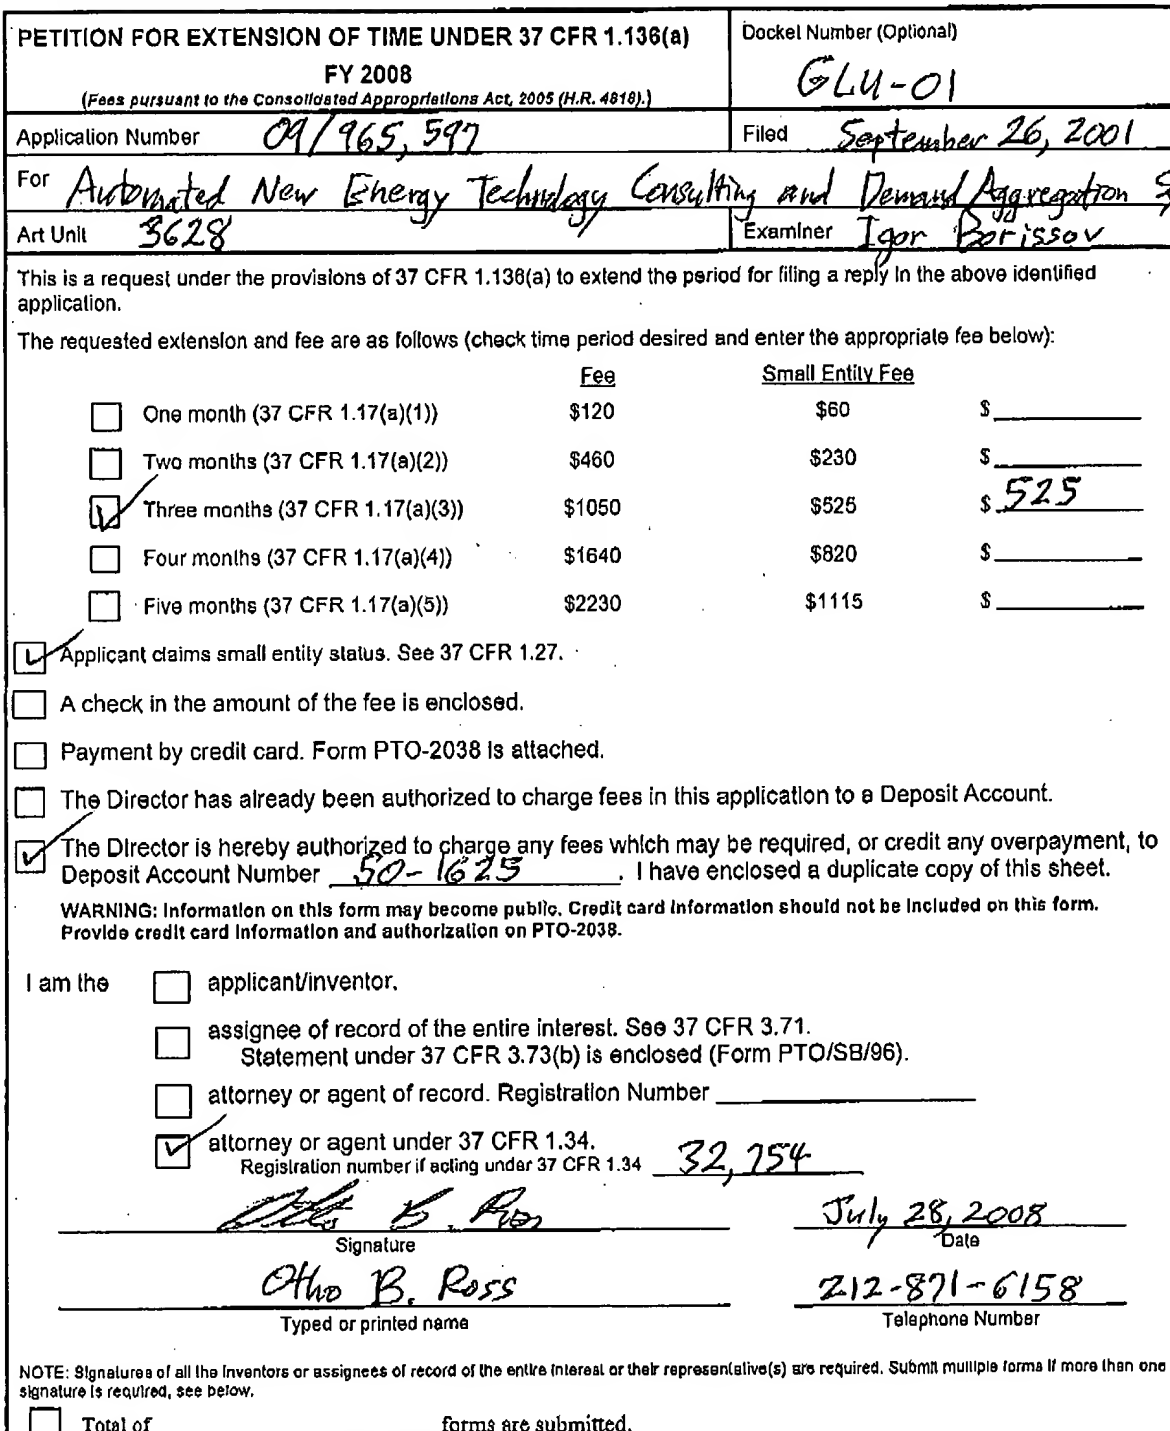 PETITION FOR EXTENSION OF TIME UNDER 37 CFR 1.136(a)
FY 2008
(Fees pursuant to the Consolidated Appropriations Act, 2005 (H.R. 4818).)
Docket Number (Optional)
GLU-01
Application Number 09/965,597
Filed September 26, 2001
For Automated New Energy Technology Consulting and Demand Aggregation
Art Unit 3628
Examiner Igor Borissov
This is a request under the provisions of 37 CFR 1.136(a) to extend the period for filing a reply in the above identified
application.
The requested extension and fee are as follows (check time period desired and enter the appropriate fee below):
Fee Small Entity Fee
One month (37 CFR 1.17(a)(1)) $120 $60 $
Two months (37 CFR 1.17(a)(2)) $460 $230 $
Three months (37 CFR 1.17(a)(3)) $1050 $525 $ 525
Four months (37 CFR 1.17(a)(4)) $1640 $820 $
Five months (37 CFR 1.17(a)(5)) $2230 $1115 $
Applicant claims small entity status. See 37 CFR 1.27.
A check in the amount of the fee is enclosed.
Payment by credit card. Form PTO-2038 is attached.
The Director has already been authorized to charge fees in this application to a Deposit Account.
The Director is hereby authorized to charge any fees which may be required, or credit any overpayment, to
Deposit Account Number 50-1625. I have enclosed a duplicate copy of this sheet.
WARNING: Information on this form may become public. Credit card information should not be included on this form.
Provide credit card information and authorization on PTO-2038.
I am the applicant/inventor.
assignee of record of the entire interest. See 37 CFR 3.71.
Statement under 37 CFR 3.73(b) is enclosed (Form PTO/SB/96).
attorney or agent of record. Registration Number
attorney or agent under 37 CFR 1.34.
Registration number if acting under 37 CFR 1.34 32,754
Otho B. Ross July 28, 2008
Signature Date
Otho B. Ross 212-871-6158
Typed or printed name Telephone Number
NOTE: Signatures of all the inventors or assignees of record of the entire interest or their representative(s) are required. Submit multiple forms if more than one
signature is required, see below.
Total of forms are submitted.